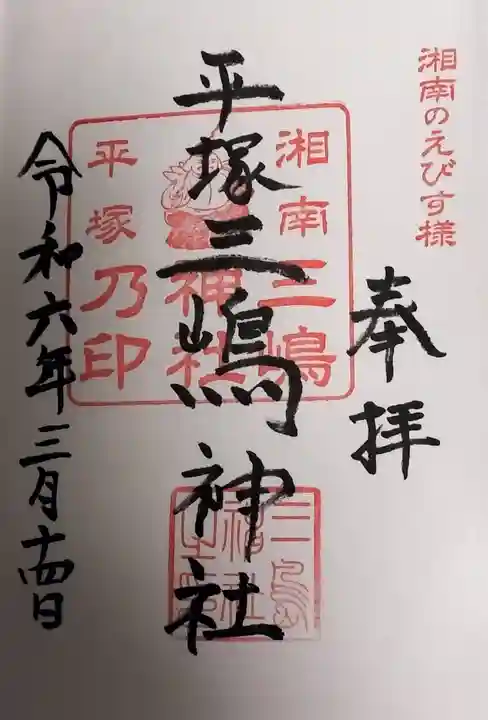 湘南のえびす様
奉拝
平塚三嶋神社
令和六年三月十四日
湘南三嶋
神社
平塚乃印
三島
神社
之印